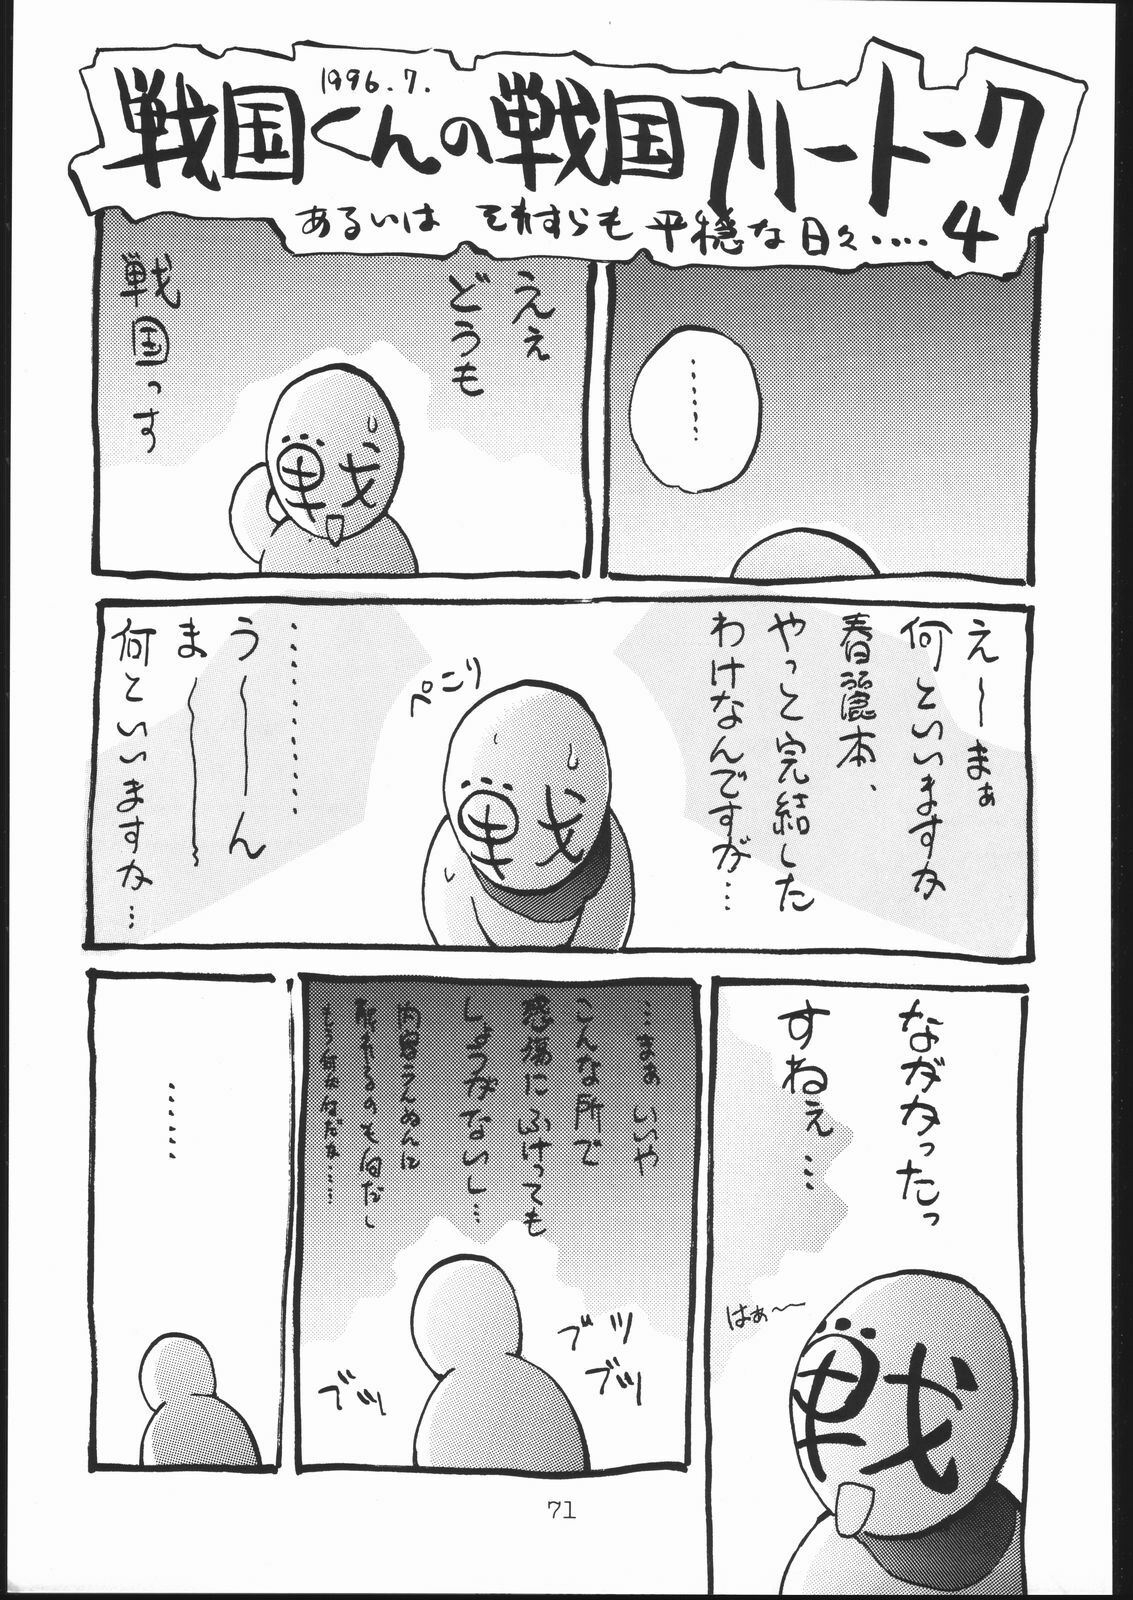 1996.7.
戦国くんの戦国フリートーク
あるいは それすらも 平穏な日々‥‥ 4
‥‥‥‥
ええ
どうも
戦国っす
え〜まぁ
何といいますか
春麗本、
やっと完結した
わけなんですが‥‥
ペこり
‥‥‥‥‥‥
うーーん
ま〜〜
何といいますか…
ながかったっ
すねぇ‥‥
はぁ〜
…まぁいいや
こんな所で
感傷にふけっても
しょうがないし…
内容うんぬんに
触れるのも何だし
ブツ
ブツ
ブツ
‥‥‥
71